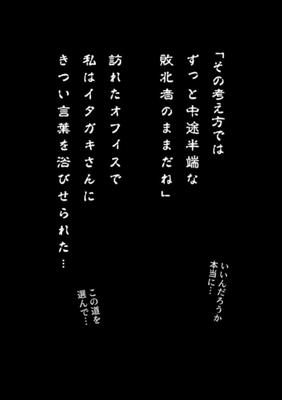 「その考え方では
ずっと中途半端な
敗北者のままだね」
訪れたオフィスで
私はイタガキさんに
きつい言葉を浴びせられた…
いいんだろうか
本当に…
この道を
選んで…